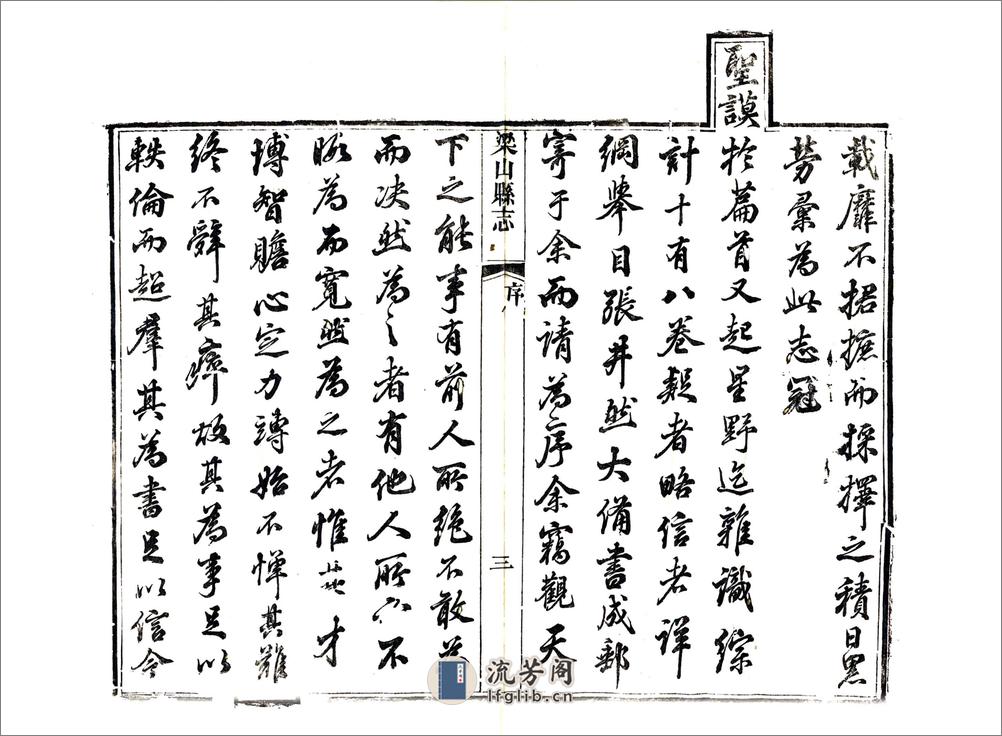 載靡不捃摭而採擇之積日累
勞彙為此志冠
聖謨於篇首又起星野迄雜識綜
計十有八卷疑者略信者詳
綱舉目張井然大備書成郵
寄于余而請為序余竊觀天
梁山縣志
序
三
下之能事有前人所絕不敢
而决然為之者有他人所不
暇為而寬然為之者惟才
博智贍心定力始不憚其難
終不辭其瘁故其為事足以
軼倫而超羣其為書足以信今
流芳阁
lfglib.cn